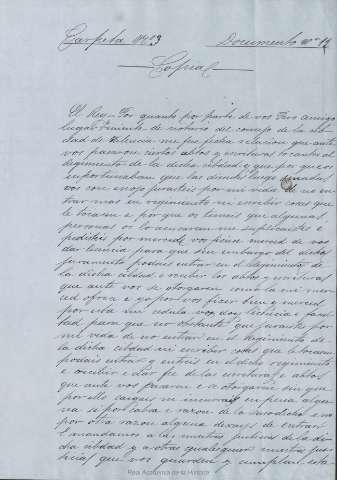 Carpeta Nº 3 Documento nº 12
Copia
El Rey = Por quanto por parte de vos Fero amigo
lugar Teniente de notario del consejo de la cib
dad de Valencia me fue fecha relacion que ante
vos pasaron ciertos abtos y escrituras tocantes al
Regimiento de la dicha cibdad y que por que os
importunaban que las
vos con enojo jurasteis por mi vida de no en
trar mas en regimiento ni escribir cosas que
le tocasen e por que os temeis que algunas
personas os lo acusaran me suplicasteis e
pedisteis por merced vos ficiese merced de vos
dar licencia para que sin embargo del dicho
juramento podais entrar en el Regimiento de
la dicha cibdad e recibir los abtos y escrituras
que ante vos se otorgaren como la mi mer
ced e yo por vos facer bien y merced
por esta mi cedula vos doy licencia e facul
tad para que no obstante que jurasteis por
mi vida de no entrar en el Regimiento de
la dicha cibdad ni escribir cosas que le tocaren
podais entrar y entreis en el dicho regimiento
e recibir e dar fe de las escrituras e abtos
que ante vos pasaren e se otorgaren sin que
por ello caigais ni incurrais en pena algu
na si por cabsa e razon de lo susodicho e no
por otra razon alguna dexays de entrar
E mandamos a las nuestras justicias de la di
cha cibdad y a otras qualesquier nuestras jus
ticias que vos guarden y cumplan esta
Real Academia de la Historia